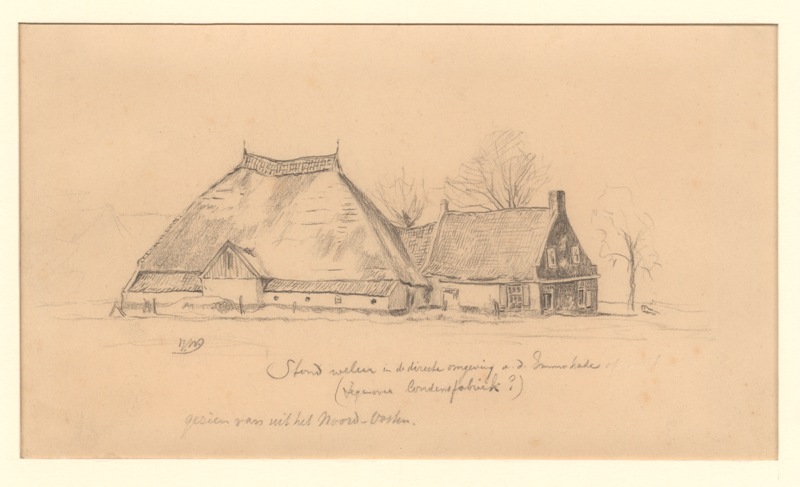 Stond weleer in de directe omgeving a. d. Emmakade
(Tegenover Condensfabriek?)
gezien van uit het Noord-Oosten.